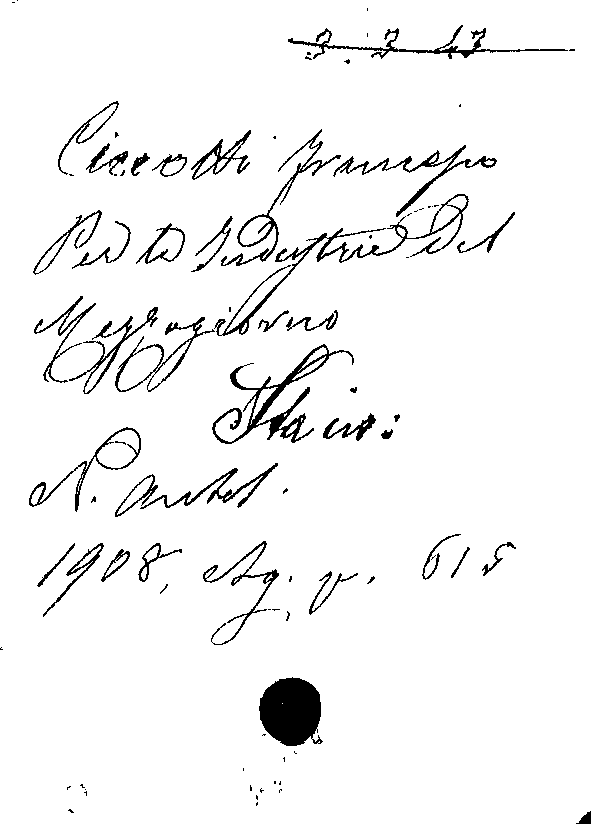 3. 3 43
Ciccotti Francesco
Per le Industrie Del
Mezzogiorno
Italia:
N. Antol.
1908, Ag. p. 615